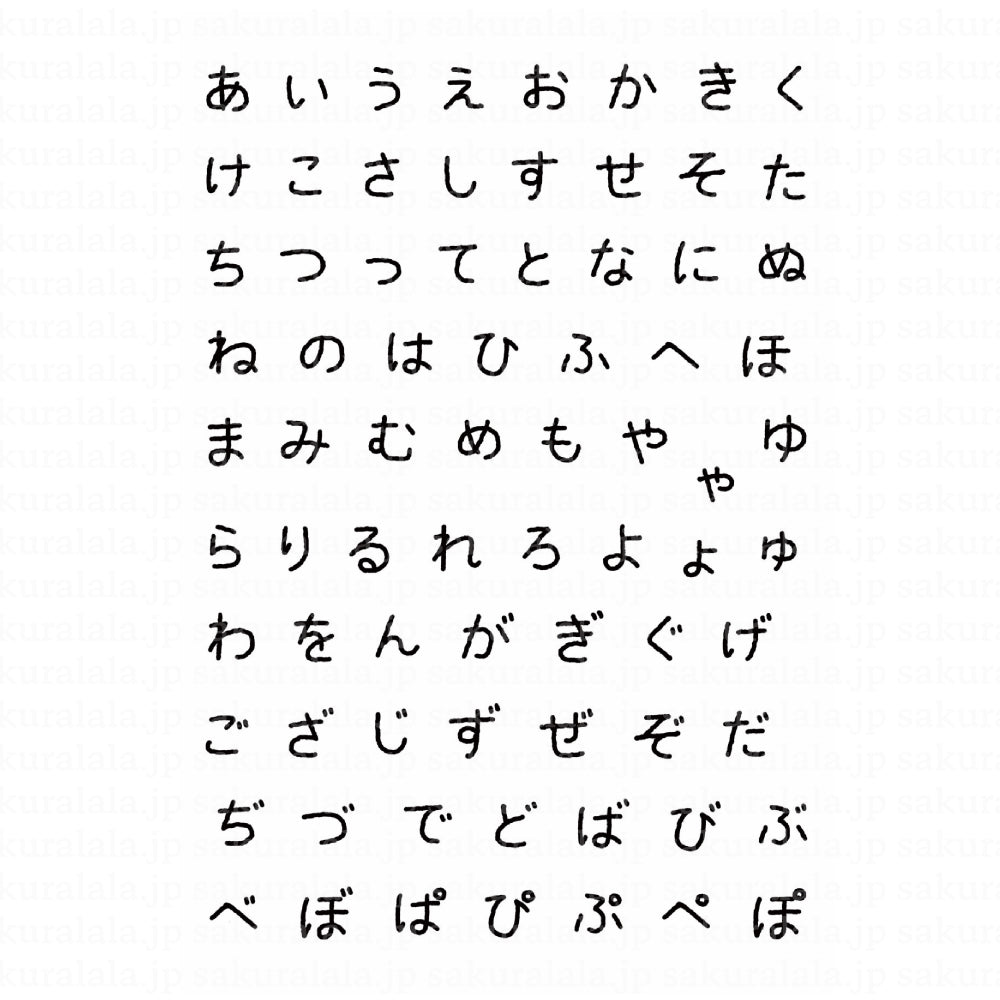 あいうえおかきく
けこさしすせそた
ちつってとなにぬ
ねのはひふへほ
まみむめもやゃゆ
らりるれろよょゅ
わをんがぎぐげ
ござじずぜぞだ
ぢづでどばびぶ
べぼぱぴぷぺぽ
sakuralala.jp